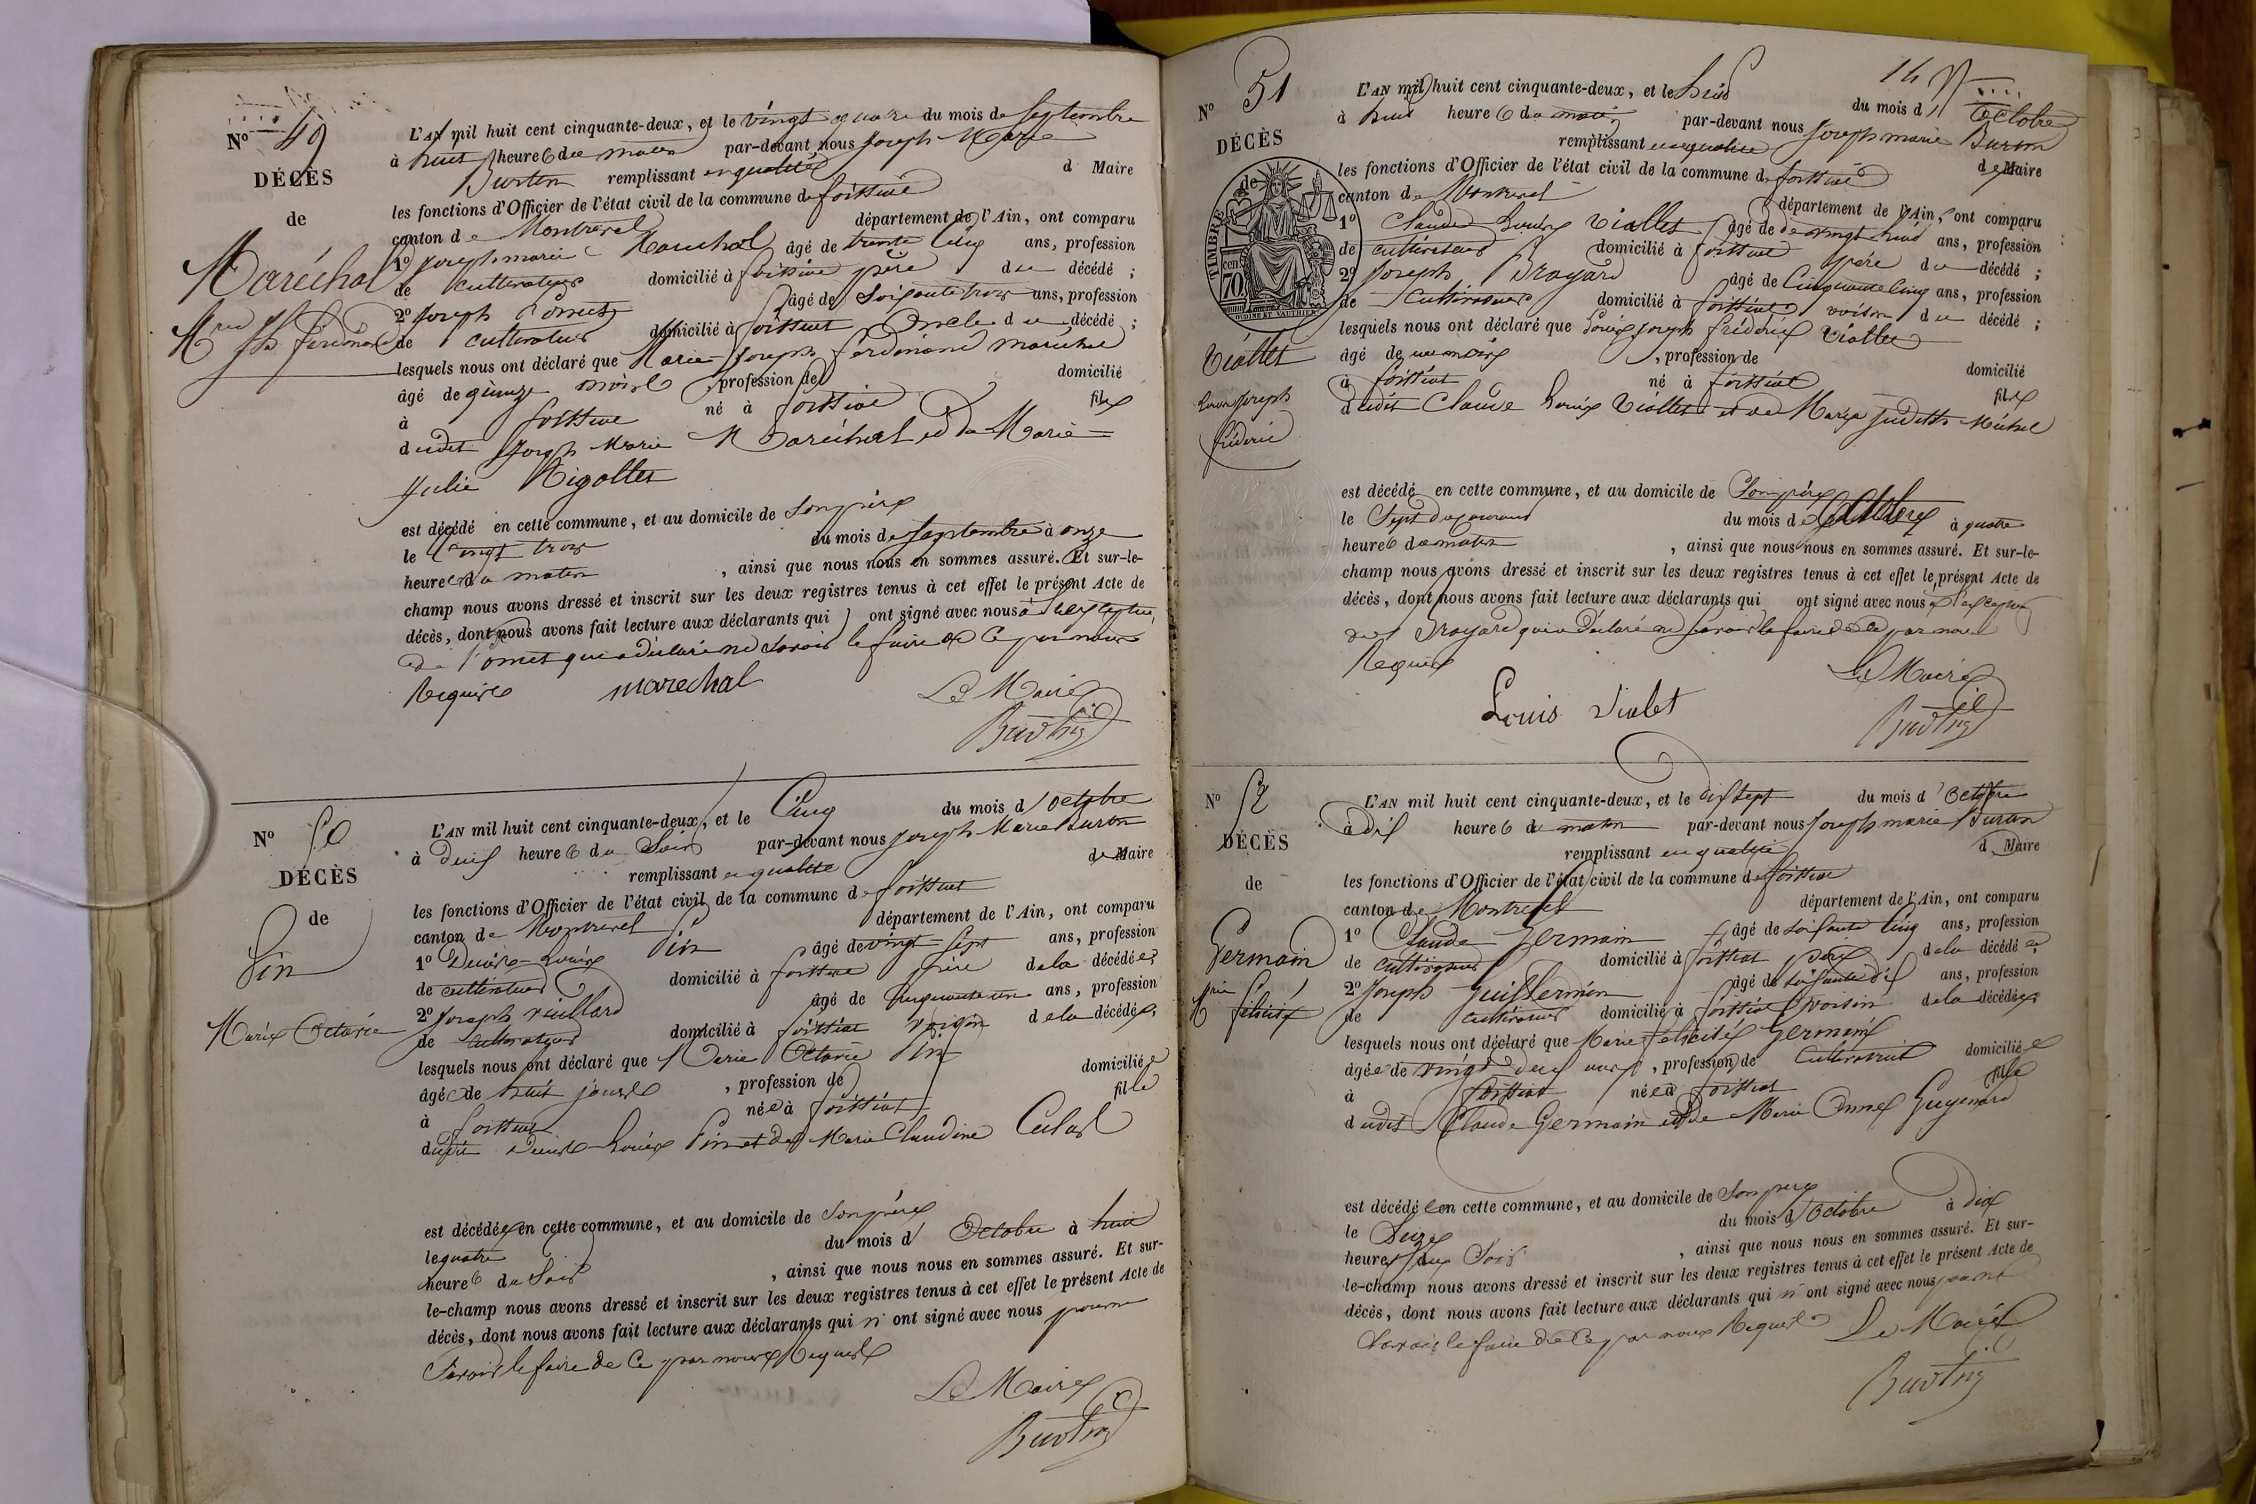 Nº 49
DÉCÈS
de
Maréchal
Mie Jh ferdinand
L'AN mil huit cent cinquante-deux, et le vingt quatre du mois de Septembre
à huit heures du matin par-devant nous Joseph Marie
Burtin remplissant en qualité d Maire
les fonctions d'Officier de l'état civil de la commune de foissiat
canton de Montrevel département de l'Ain, ont comparu
1º Joseph marie Marechal âgé de trente cinq ans, profession
de cultivateur domicilié à foissiat père du décédé ;
2º Joseph Pomet âgé de Soixante trois ans, profession
de cultivateur domicilié à foissiat oncle du décédé ;
lesquels nous ont déclaré que Marie Joseph ferdinand marechal
âgé de quinze mois , profession de domicilié
à foissiat né à foissiat fils
dudit Joseph Marie Maréchal et de Marie
Julie Rigollet
est décédé en cette commune, et au domicile de Son père
le vingt trois du mois de Septembre à onze
heures du matin , ainsi que nous nous en sommes assuré. Et sur-le-
champ nous avons dressé et inscrit sur les deux registres tenus à cet effet le présent Acte de
décès, dont nous avons fait lecture aux déclarants qui ont signé avec nous à l'exception
de Pomet qui a déclaré ne Savoir le faire de ce par nous
Requis marechal Le Maire
Burtin
Nº 50
DÉCÈS
de
Pin
Marie Octavie
L'AN mil huit cent cinquante-deux, et le Cinq du mois d'octobre
à deux heures du Soir par-devant nous Joseph Marie Burtin
remplissant en qualité de Maire
les fonctions d'Officier de l'état civil de la commune de foissiat
canton de Montrevel département de l'Ain, ont comparu
1º Denis Louis Pin âgé de vingt Sept ans, profession
de cultivateur domicilié à foissiat père de la décédée ;
2º Joseph vieillard âgé de Cinquante un ans, profession
de cultivateur domicilié à foissiat voisin de la décédée,
lesquels nous ont déclaré que Marie Octavie Pin
âgée de huit jours , profession de domiciliée
à foissiat née à foissiat fille
dudit Denis Louis Pin et de Marie Claudine
est décédée en cette commune, et au domicile de Son père
le quatre du mois d' Octobre à huit
heures du Soir , ainsi que nous nous en sommes assuré. Et sur-
le-champ nous avons dressé et inscrit sur les deux registres tenus à cet effet le présent Acte de
décès, dont nous avons fait lecture aux déclarants qui n'ont signé avec nous pour ne
Savoir le faire de ce par nous Requis
Le Maire
Burtin
14
Nº 51
DÉCÈS
de
TIMBRE
cen.
70
OUDINÉ ET VAUTHIER
Viollet
Louis Joseph
fréderic
L'AN mil huit cent cinquante-deux, et le huit du mois d'Octobre
à huit heures du matin par-devant nous Joseph marie Burtin
remplissant en qualité de Maire
les fonctions d'Officier de l'état civil de la commune de foissiat
canton de Montrevel département de l'Ain, ont comparu
1º Claude Louis Viollet âgé de vingt huit ans, profession
de cultivateur domicilié à foissiat père du décédé ;
2º Joseph Broyard âgé de Cinquante Cinq ans, profession
de cultivateur domicilié à foissiat voisin du décédé ;
lesquels nous ont déclaré que Louis Joseph fréderic Viollet
âgé de un mois , profession de domicilié
à foissiat né à foissiat fils
dudit Claude Louis Viollet et de Marie Judith Michel
est décédé en cette commune, et au domicile de Son père
le Sept du courant du mois d à quatre
heures du matin , ainsi que nous nous en sommes assuré. Et sur-le-
champ nous avons dressé et inscrit sur les deux registres tenus à cet effet le présent Acte de
décès, dont nous avons fait lecture aux déclarants qui ont signé avec nous à l'exception
de Broyard qui a déclaré ne Savoir le faire de ce par nous
Requis Le Maire
Louis Violet Burtin
Nº 52
DÉCÈS
de
Germain
Mie félicité
L'AN mil huit cent cinquante-deux, et le dix Sept du mois d'Octobre
à dix heures du matin par-devant nous Joseph marie Burtin
remplissant en qualité d Maire
les fonctions d'Officier de l'état civil de la commune de foissiat
canton de Montrevel département de l'Ain, ont comparu
1º Claude Germain âgé de Soixante Cinq ans, profession
de cultivateur domicilié à foissiat père de la décédée ;
2º Joseph Guillermin âgé de Soixante dix ans, profession
de cultivateur domicilié à foissiat voisin de la décédée
lesquels nous ont déclaré que Marie félicité Germain
âgée de vingt deux ans , profession de domiciliée
à foissiat née à foissiat fille
dudit Claude Germain et de Marie Anne Guyenard
est décédée en cette commune, et au domicile de Son père
le Seize du mois d'Octobre à dix
heures du Soir , ainsi que nous nous en sommes assuré. Et sur-
le-champ nous avons dressé et inscrit sur les deux registres tenus à cet effet le présent Acte de
décès, dont nous avons fait lecture aux déclarants qui n'ont signé avec nous pour ne
Savoir le faire de ce par nous Requis Le Maire
Burtin